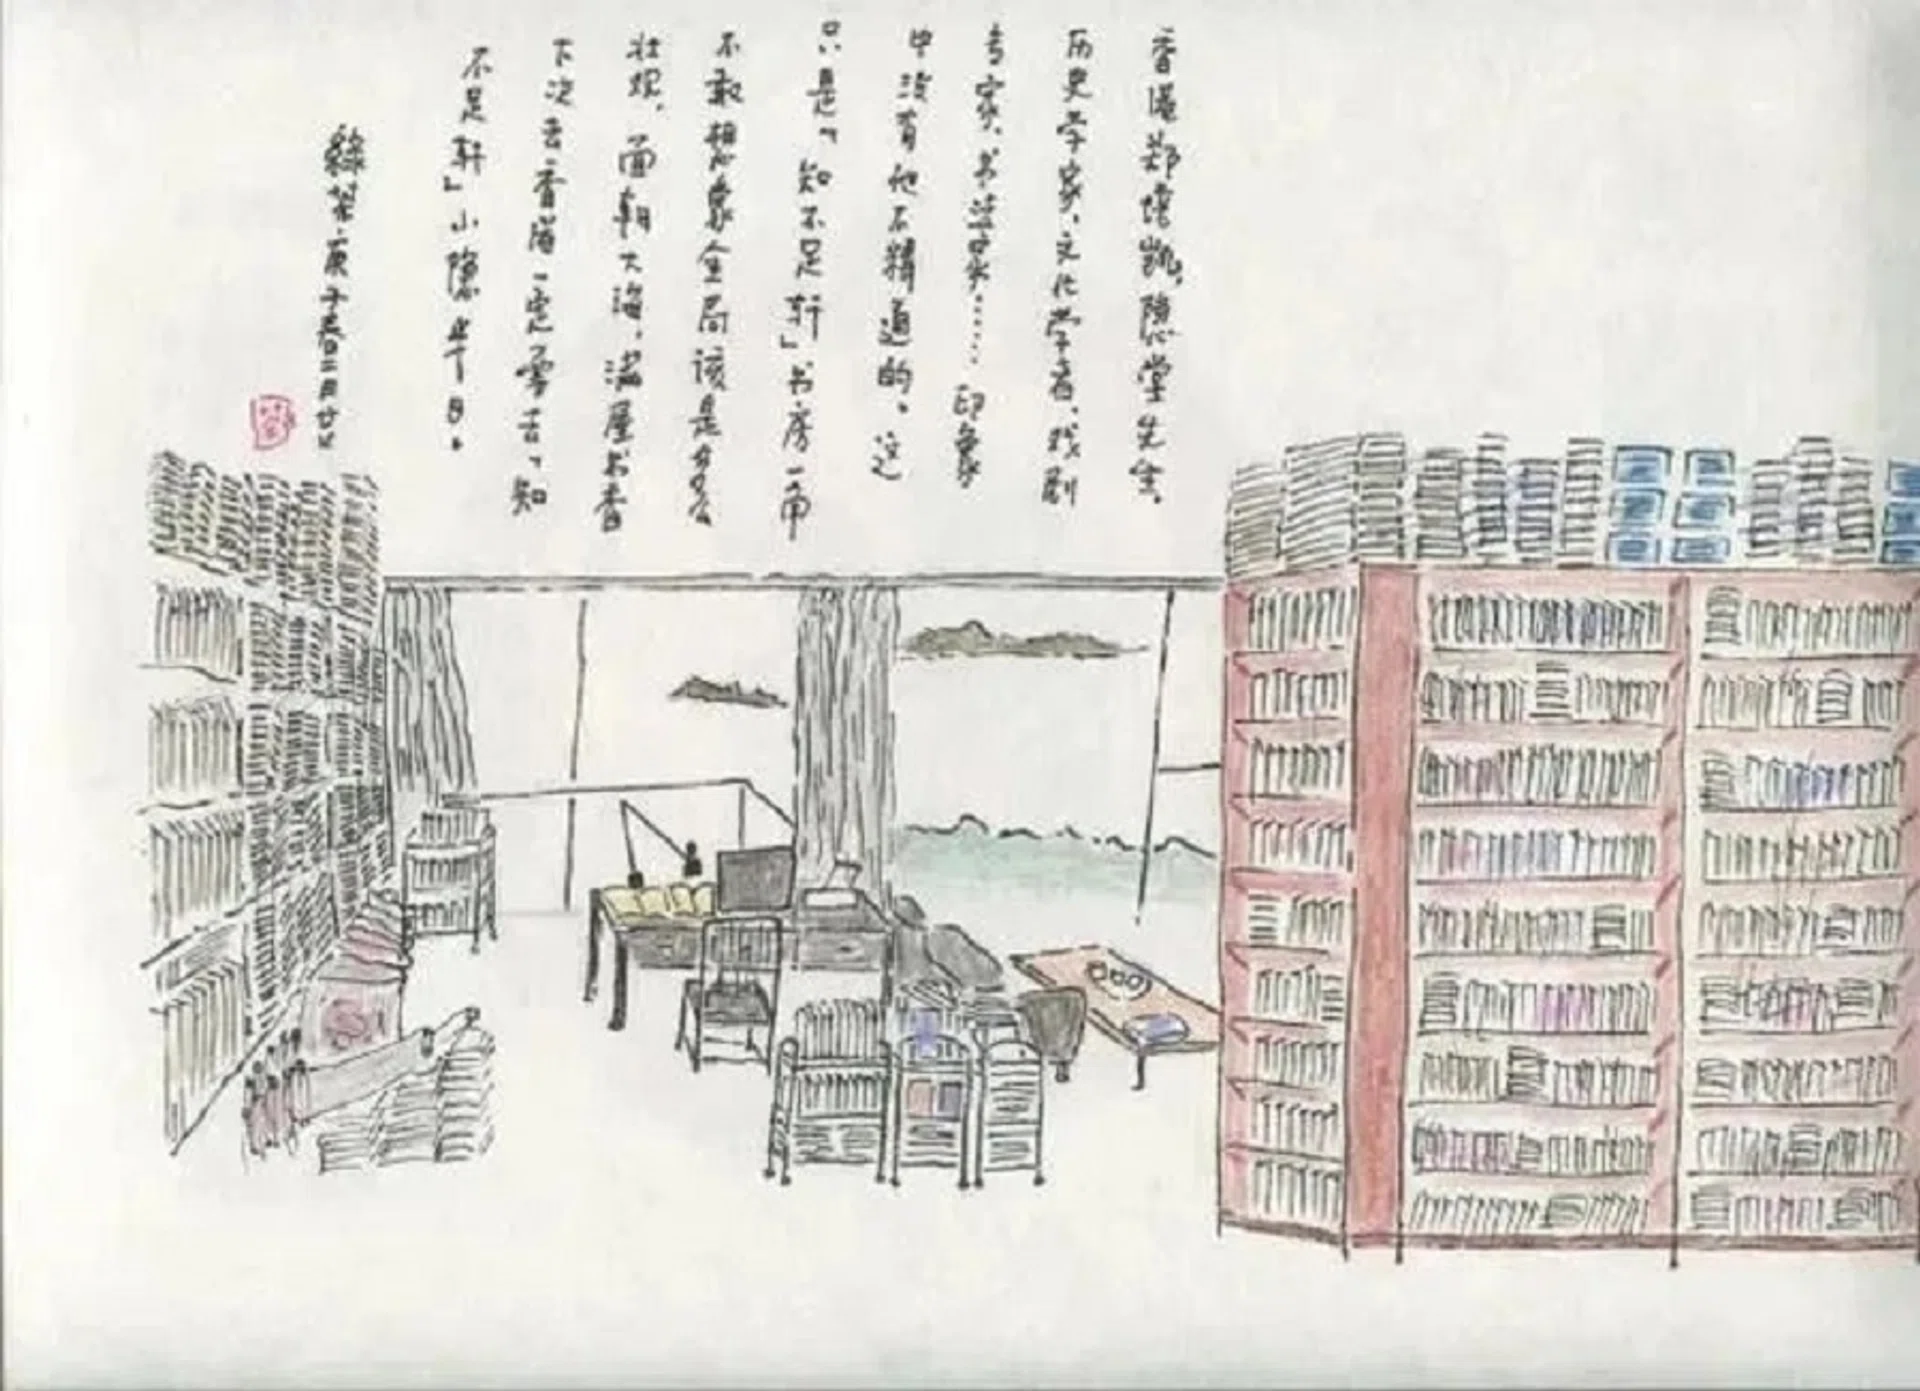 香港郑培凯,隐堂先生。
历史学家、文化学者、戏剧
专家、书法家……印象
中没有他不精通的。这
只是「知不足轩」书房一角
不敢想象全局该是多么
壮观,面朝大海,满屋书香
下次去香港一定要去「知
不足轩」小隐半日。
绿茶·庚子春二月廿七